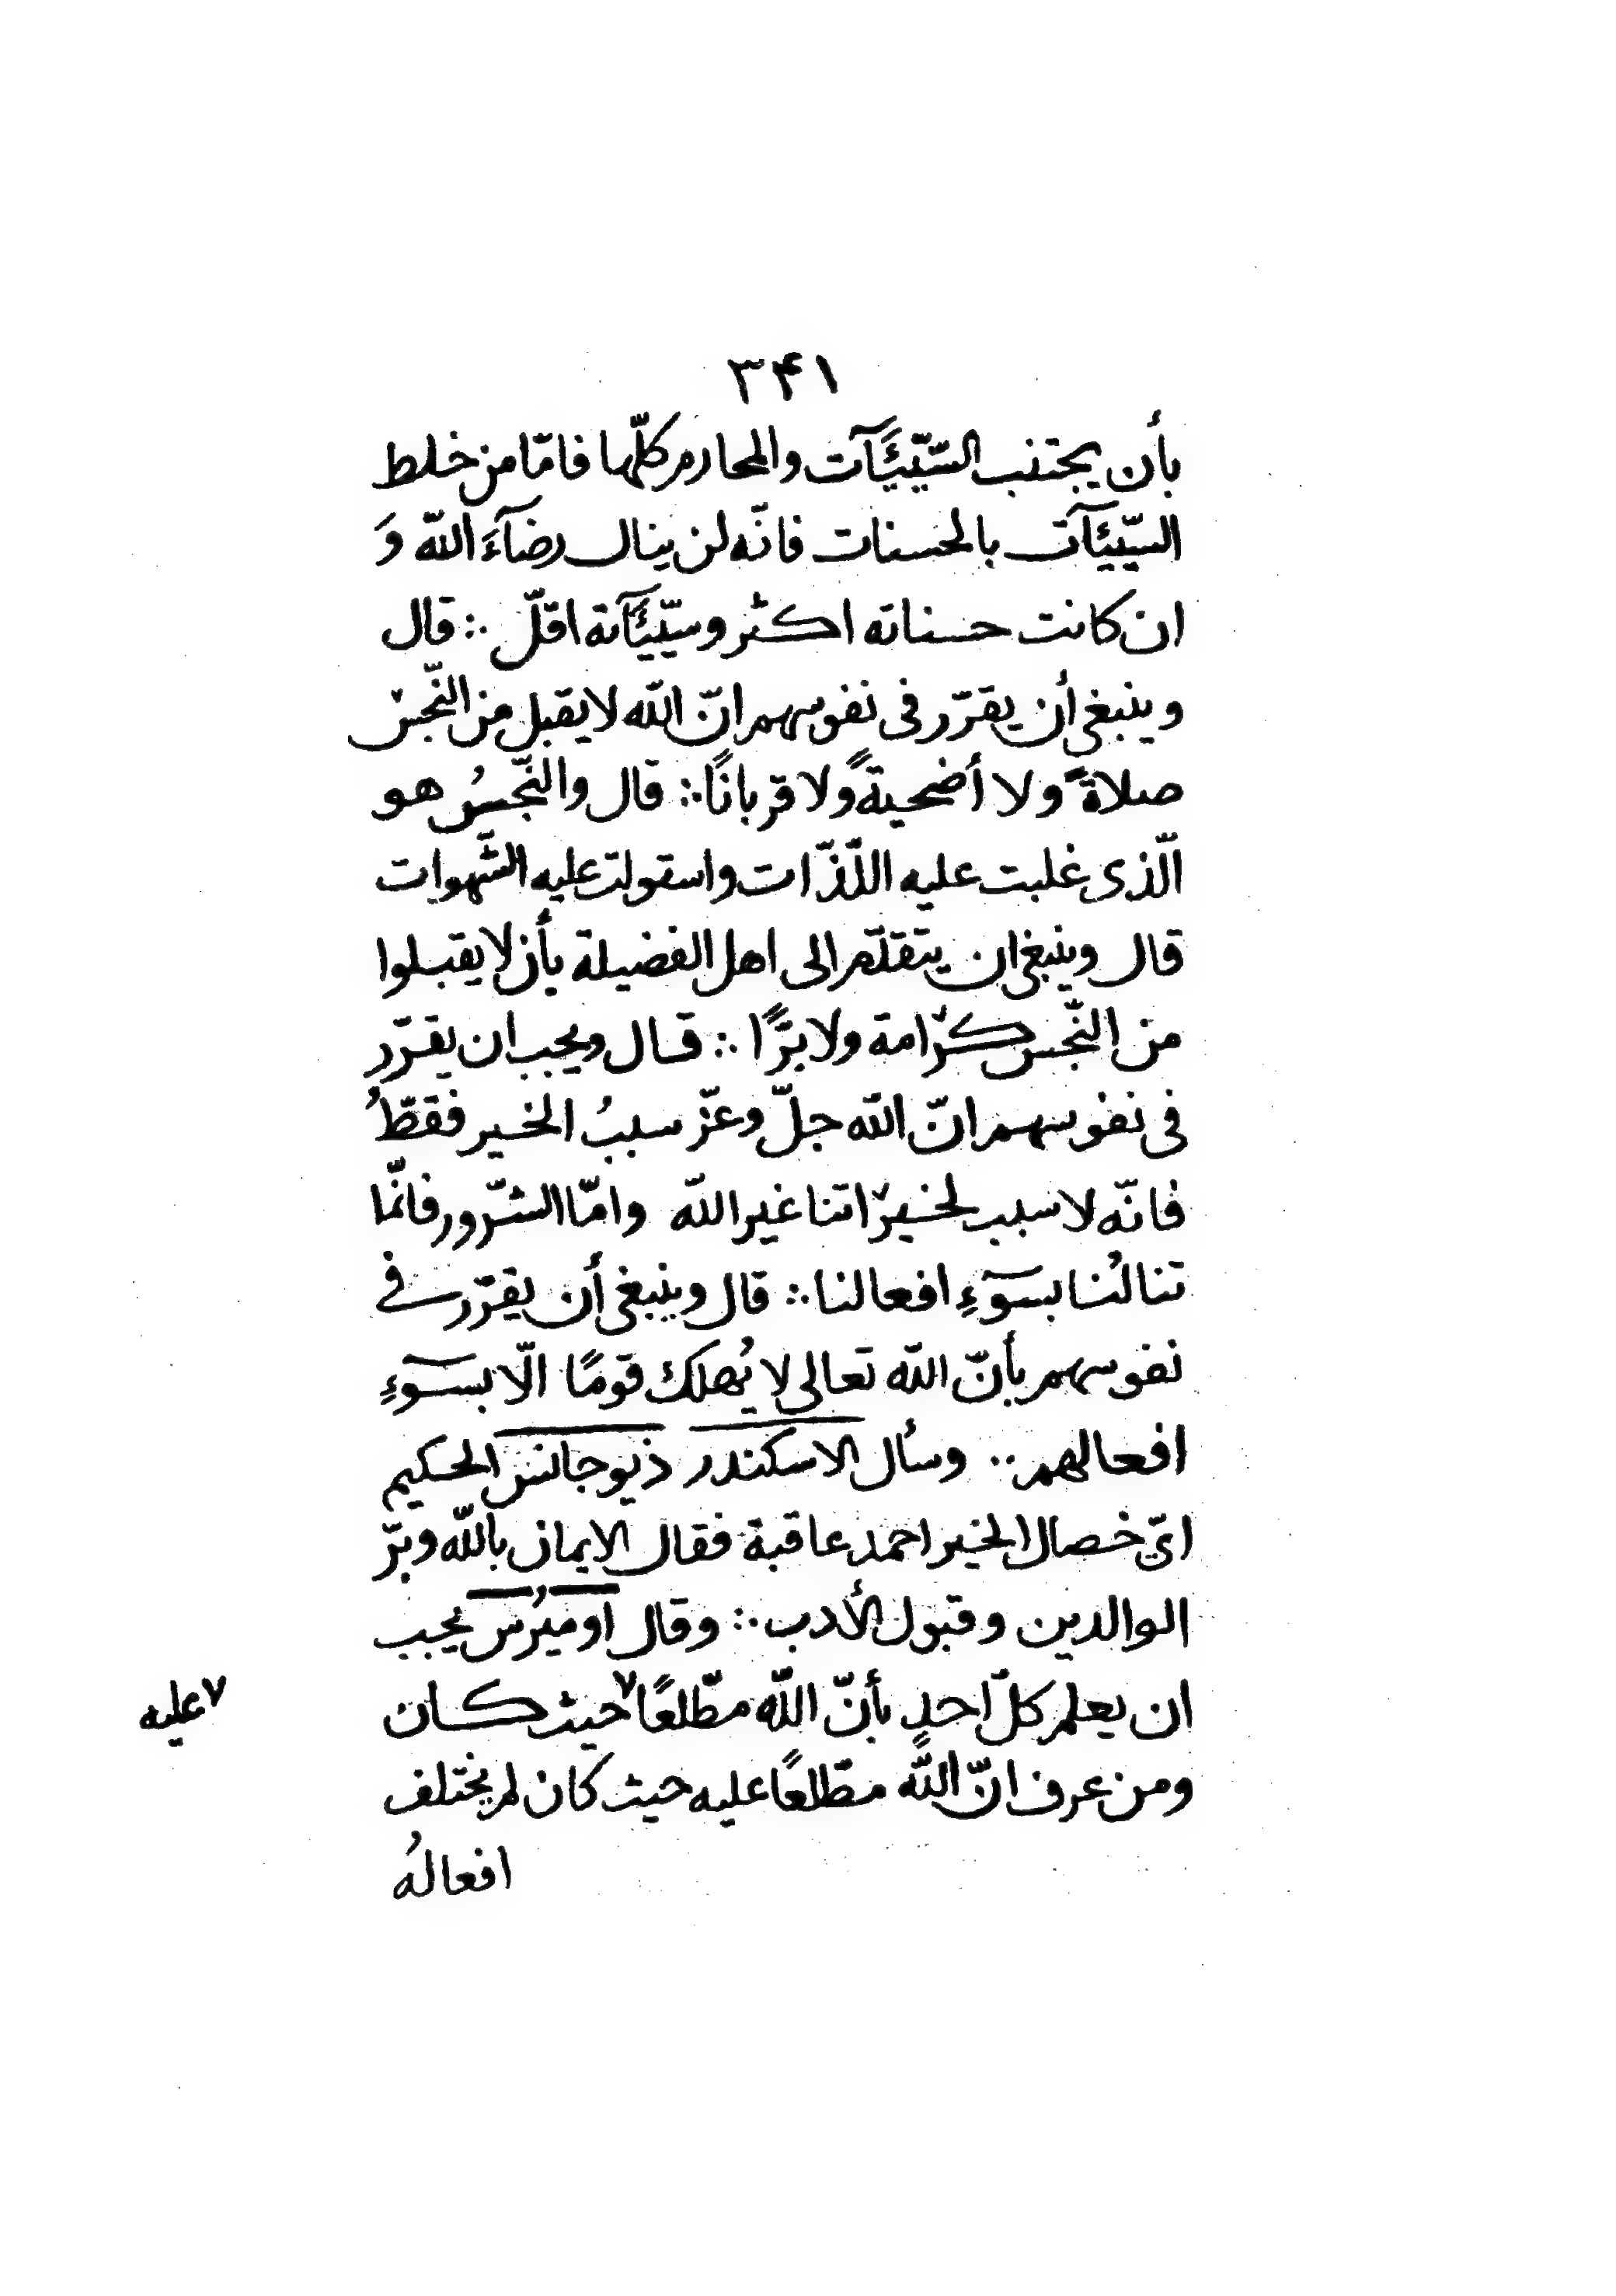 ۳۴۱
بأن يجتنب السّيّئَآت والمحارم كلّها فامّا من خلط
السّيّئآت بالحسنات فانّه لن ينال رضآءَ اللّه وَ
ان كانت حسناته اكثر وسيّئَآته اقلّ ∴ قال
وينبغى أن يقرّر فى نفوسهم انّ اللّه لا يقبل من النّجس
صلاةً ولا أضحيةً ولا قربانًا ∴ قال والنّجسُ هو
الّذى غلبت عليه اللّذّات واستولت عليه الشّهوات
قال وينبغى ان يتقدّم الى اهل الفضيلة بأن لا يقبلوا
من النّجس كرامة ولا برًّا ∴ قال ويجب ان يقرّر
فى نفوسهم انّ اللّه جلّ وعزّ سببُ الخير فقطُ
فانّه لا سبب لخيراتنا غير اللّه وامّا الشّرور فانّما
تنالُنا بسَوٓءِ افعالنا ∴ قال وينبغى أن يقرّر فى
نفوسهم بأنّ اللّه تعالى لا يُهلك قومًا الّا بسَوٓءِ
افعالهم .. وسأل الاسكندر ذيوجانس الحكيم
اىّ خصال الخير احمد عاقبة فقال الايمان باللّه وبرّ
الوالدين وقبول الأدب ∴ وقال اوميُرس يجب
ان يعلم كلّ احدٍ بأنّ اللّه مطّلعًا ٧ حيث كان
٧ عليه
ومن عرف انّ اللّه مطّلعًا عليه حيث كان لم يختلف
افعالهُ